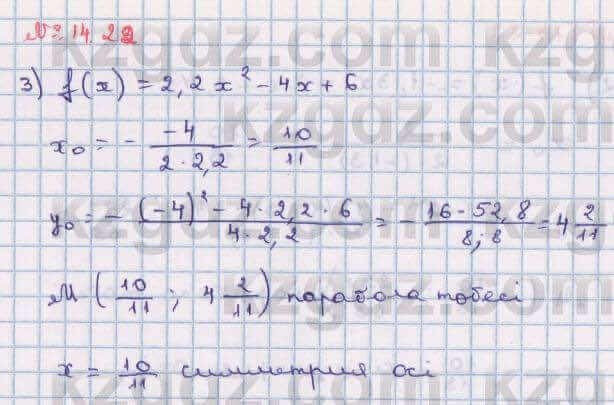 № 14.22
3) f(x) = 2,2x² - 4x + 6
x₀ = - \frac{-4}{2·2,2} = \frac{10}{11}
y₀ = - \frac{(-4)² - 4·2,2·6}{4·2,2} = - \frac{16-52,8}{8,8} = 4 \frac{2}{11}
M ( \frac{10}{11} ; 4 \frac{2}{11} ) парабола төбесі
x = \frac{10}{11} симметрия осі
kzgdz.com